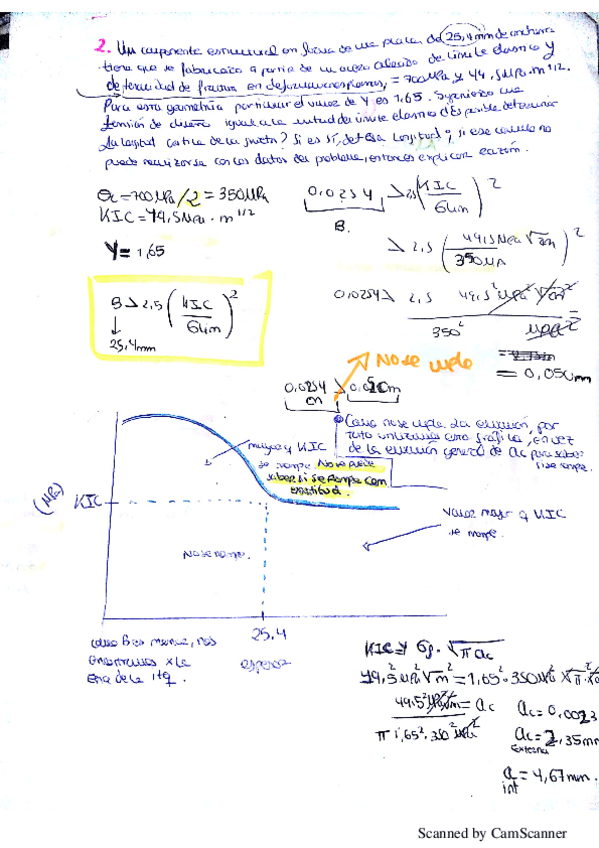 2. Un componente estructural en forma de una placa de 25,4 mm de anchura
tiene que se fabricado a partir de un acero aleado de límite elástico y
de tenacidad de fractura en deformaciones planas, = 700 MPa y 49,5 MPa·m^1/2.
Para esta geometría particular el valor de Y es 1,65. Suponiendo una
tensión de diseño igual a la mitad del límite elástico ¿Es posible determinar
la longitud crítica de la grieta? Si es sí, det esa longitud y, si ese cálculo no
puede realizarse con los datos del problema, entonces explicar razón.
= 700 MPa/2 = 350 MPa
KIC = 49,5 MPa · m^1/2
Y = 1,65
0,0254 > 2,5 (KIC / σlim)^2
B.
> 2,5 (49,5 MPa √m / 350 MPa)^2
0,0254 > 2,5
350^2
= 0,050 m
B > 2,5 (KIC / σlim)^2
25,4mm
No se cumple
0,0254 >
Como no se cumple la ecuación, por
de la ecuación general de ac para saber
si se rompe.
mayor q KIC
se rompe. No se puede
saber si se rompe con
exactitud.
(MPa)
KIC
Valor mayor q KIC
se rompe.
No se rompe.
25.4
espesor
como B es menor, nos
encontramos x la
zona de la izq.
√π ac
49,5^2 MPa^2 √m^2 = 1,65^2 · 350 MPa^2
= ac
π 1,65^2 · 350^2 MPa^2
ac = 0,0023
ac = 2,35mm
externa
a = 4,67 mm.
int
Scanned by CamScanner